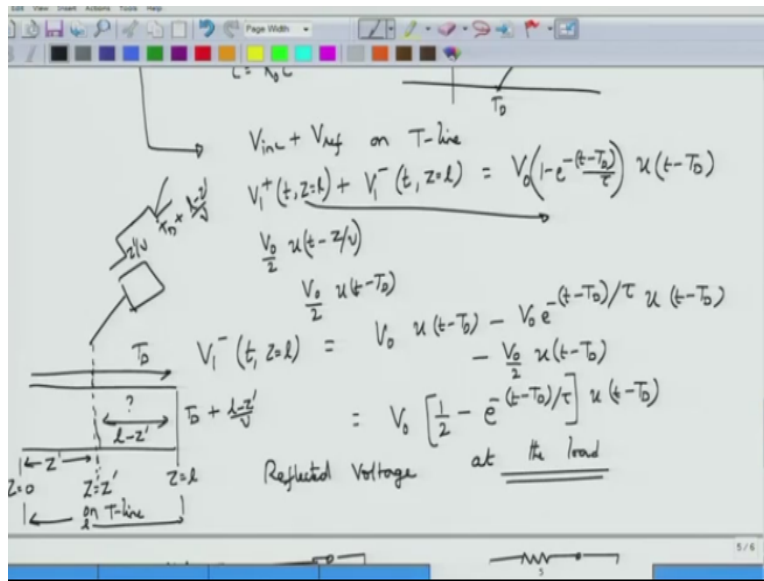 Edit View Insert Actions Tools Help
Page Width
T_D
V_inc + V_ref on T-line
V_1^+(t, z=l) + V_1^-(t, z=l) = V_0(1-e^{-(t-T_D)/τ}) u(t-T_D)
V_0/2 u(t-z/v)
V_0/2 u(t-T_D)
z'/v
T_D + (l-z')/v
T_D
V_1^-(t, z=l) = V_0 u(t-T_D) - V_0 e^{-(t-T_D)/τ} u(t-T_D)
- V_0/2 u(t-T_D)
?
l-z'
T_D + (l-z')/v
= V_0 [1/2 - e^{-(t-T_D)/τ}] u(t-T_D)
z'
z=0
z=z'
z=l
on T-line
l
Reflected Voltage at the load
5/6
5